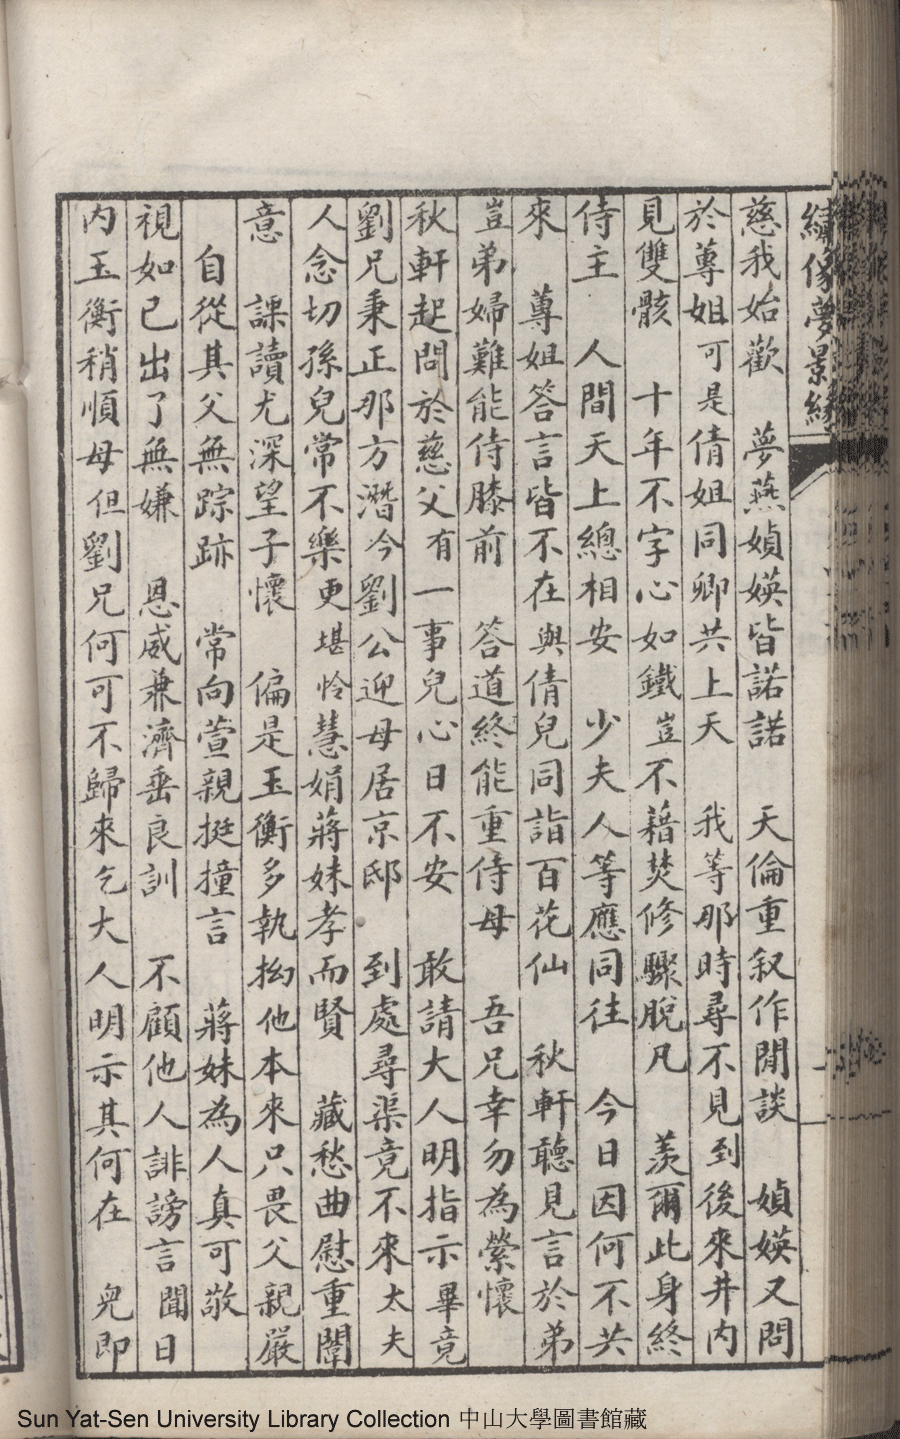 繡像夢景緣
慈我始歡　夢燕媜媖皆諾諾　天倫重叙作閒談　媜媖又問
於尊姐可是倩姐同卿共上天　我等那時尋不見到後來井內
見雙骸　十年不字心如鐵豈不藉焚修驟脫凡　羨爾此身終
侍主　人間天上總相安　少夫人等應同往　今日因何不共
來　尊姐答言皆不在與倩兒同詣百花仙　秋軒聽見言於弟
豈弟婦難能侍膝前　答道終能重侍母　吾兄幸勿為縈懷
秋軒起問於慈父有一事兒心日不安　敢請大人明指示畢竟
劉兄秉正那方潛今劉公迎母居京邸　到處尋渠竟不來太夫
人念切孫兒常不樂更堪怜慧娟蔣妹孝而賢　藏愁曲慰重闈
意　課讀尤深望子懷　偏是玉衡多執拗他本來只畏父親嚴
自從其父無踪跡　常向萱親挺撞言　蔣妹為人真可敬
視如已出了無嫌　恩威兼濟垂良訓　不顧他人誹謗言聞日
內玉衡稍順母但劉兄何可不歸來乞大人明示其何在　兒即
Sun Yat-Sen University Library Collection 中山大學圖書館藏